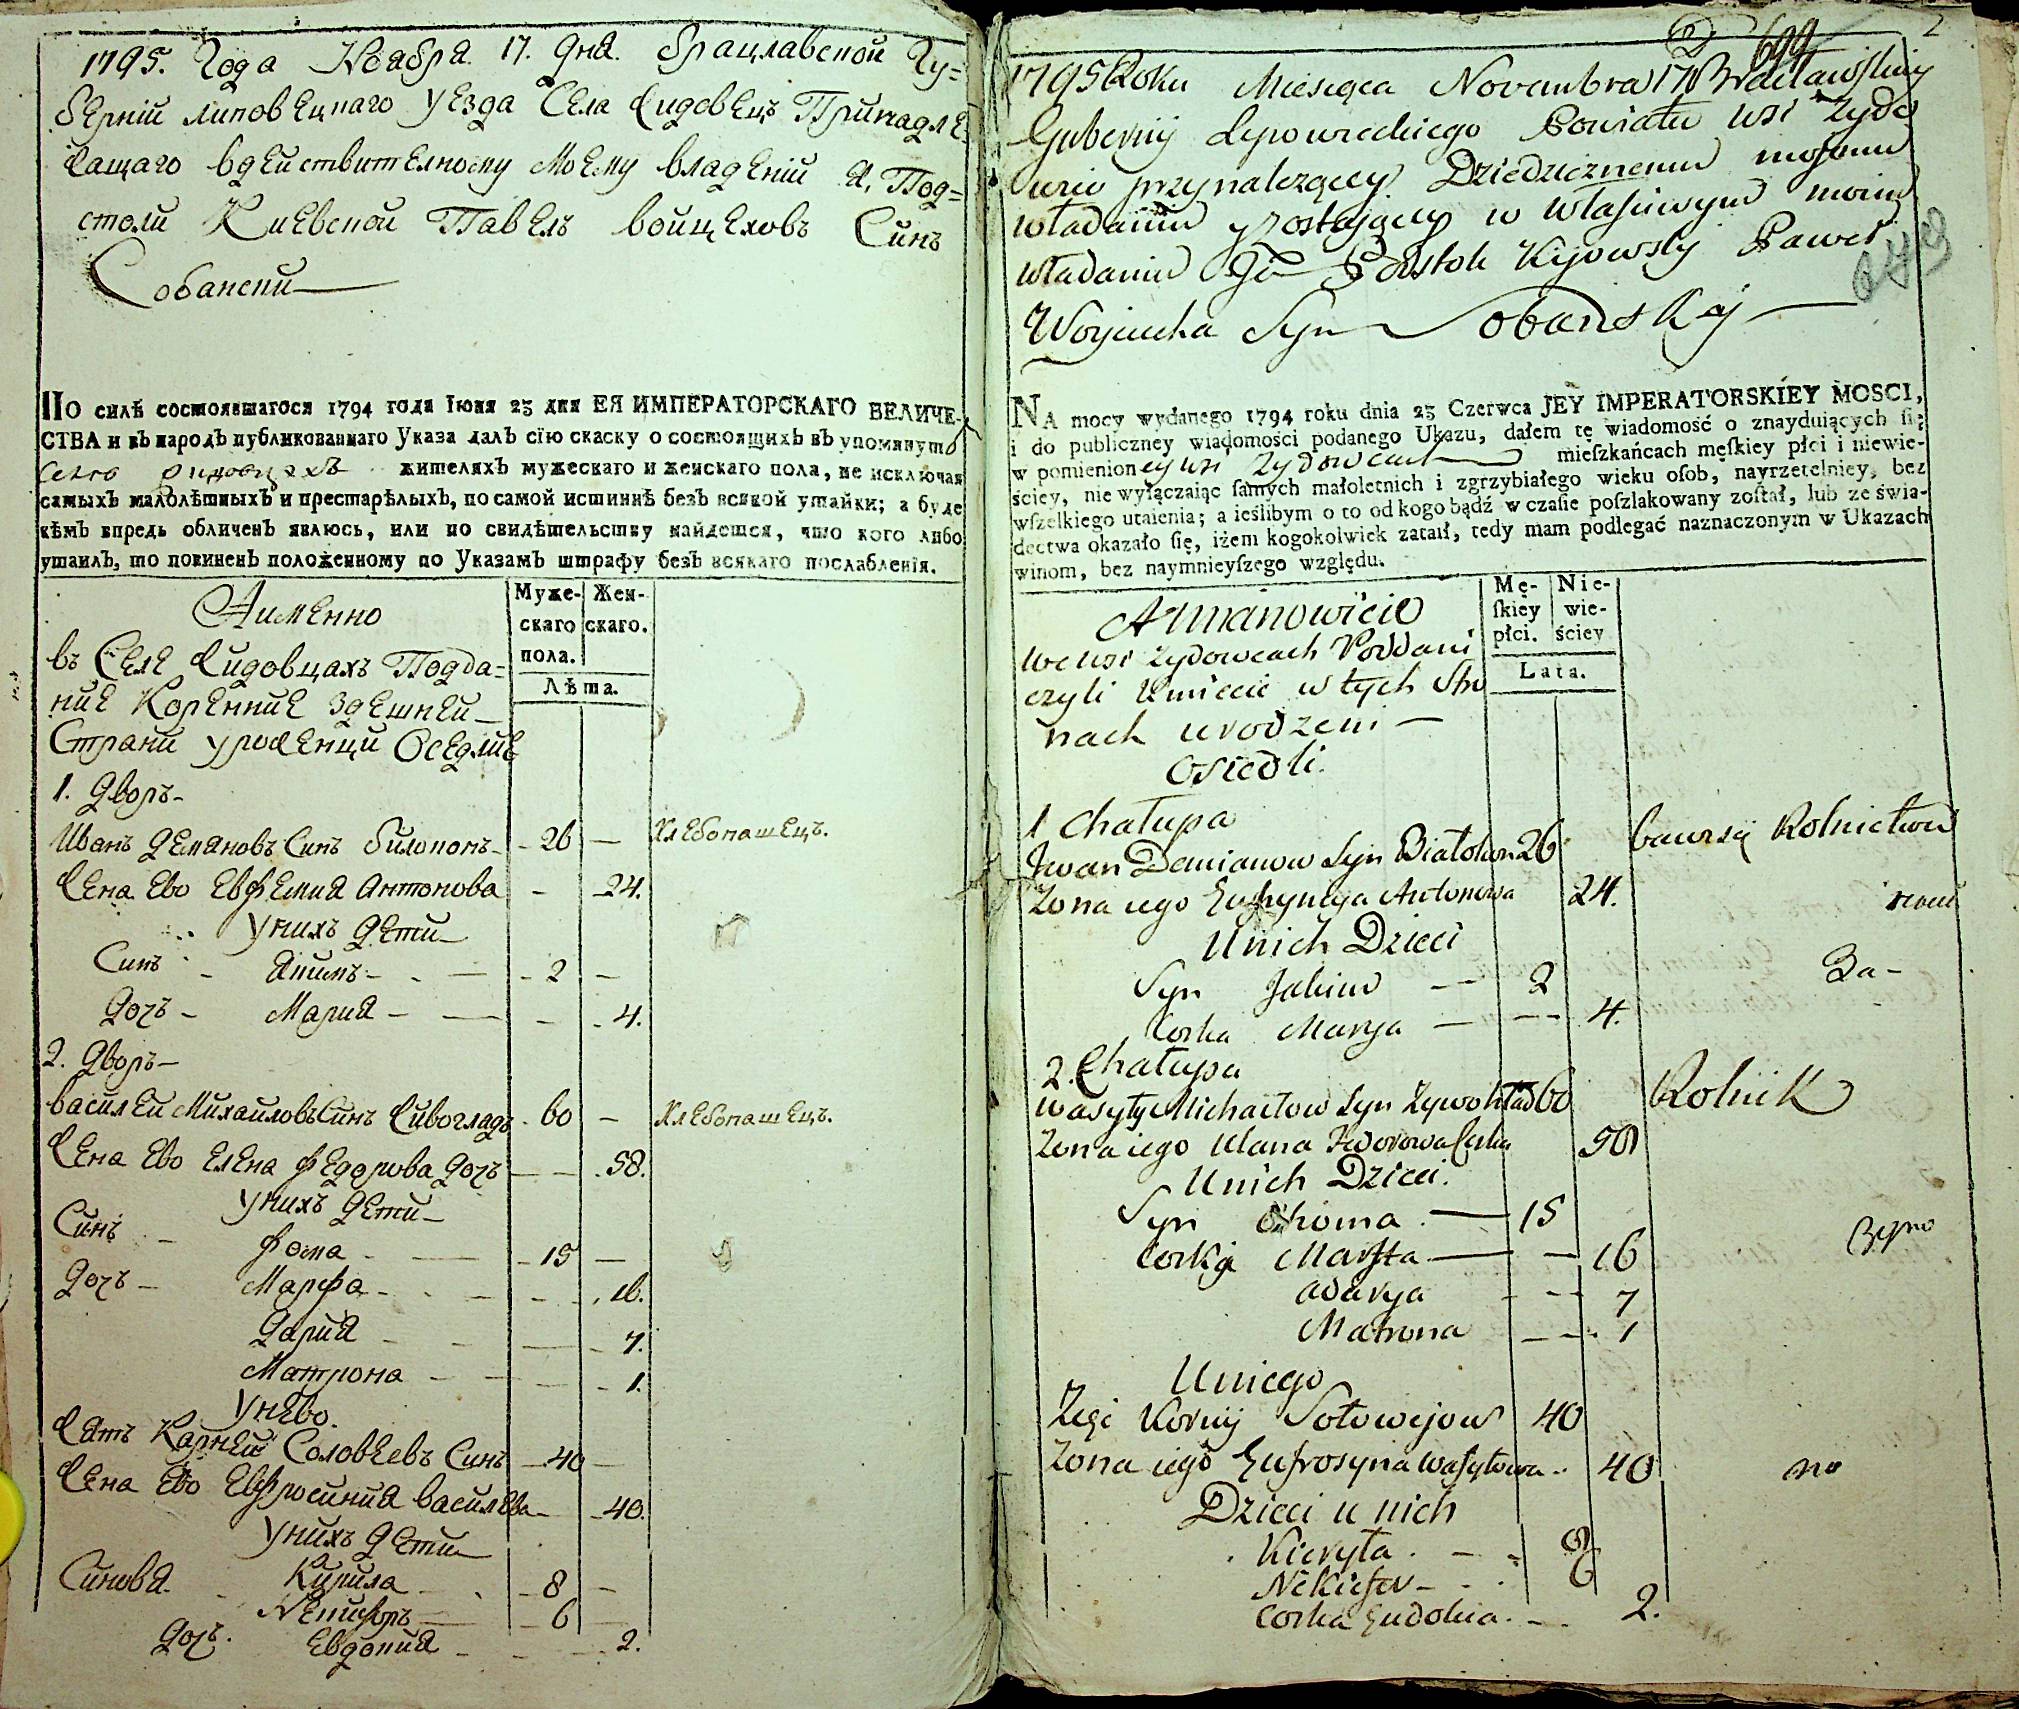 1795. Года Ноября 17. дня. Брацлавской Гу=
бернїи липовецкаго уезда Села Жидовецъ Принадле=
жащаго вдействителному моему владенїи Я, Под=
столи Киевской Павелъ войцеховъ Синъ
Собански
ПО силѣ состоявшагося 1794 года Іюня 23 дня ЕЯ ИМПЕРАТОРСКАГО ВЕЛИЧЕ-
СТВА и въ народъ публикованнаго Указа далъ сїю скаску о состоящихъ въ упомянуто
Селе Жидовцахъ жителяхъ мужескаго и женскаго пола, не исключая
самыхъ малолѣтныхъ и престарѣлыхъ, по самой истиннѣ безъ всякой утайки; а буде
кѣмъ впредь обличенъ явлюсь, или по свидѣтельству найдется, что кого либо
утаилъ, то повиненъ положенному по Указамъ штрафу безъ всякаго послабленїя.
Аимено
Муже-скаго пола. Жен-скаго.
Лѣта.
въ Селе Жидовцахъ Подда=
ние Коренние здешней
Страни уроженци Оседлие
1. Дворъ-
Иванъ демяновъ Синъ билоконъ - 26 — Хлебопашецъ.
Жена Ево Евфемия Антонова - 24.
Унихъ Дети
Синъ - Якимъ - 2 —
Дочъ - Мария - 4.
2. Дворъ-
василеи Михаиловъ Синъ Живогладъ - 60 — Хлебопашецъ.
Жена Ево Елена федорова Дочъ — 58.
Унихъ Дети
Синъ - фома - 15 —
Дочъ - Марфа - 16.
Дария - 7.
Матрона - 1.
Унево.
Жять Карней Соловеевъ Синъ - 40 —
Жена Ево Евфросиния василева - 40.
Унихъ Дети
Синовя - Кирила - 8 —
Никифоръ - 6 —
Дочъ. Евдокия - 2.
2
699
1795 Roku Miesiąca Novembra 17 Bracławskiey
Gubernij Lipowieckiego Powiatu wsi Żydo
wiec przynależącey Dziedzicznemu mojemu
władaniu zostającey w własciwym moim
władaniu Ja Podstoli Kijowski Paweł
Woyciecha Syn Sobanskij
NA mocy wydanego 1794 roku dnia 23 Czerwca JEY IMPERATORSKIEY MOSCI,
i do publiczney wiadomości podanego Ukazu, dałem tę wiadomość o znayduiących się
w pomienioney wsi Zydowcach mieszkańcach męskiey płci i niewie-
ściey, nie wyłączaiąc samych małoletnich i zgrzybiałego wieku osob, nayrzetelniey, bez
wszelkiego utaienia; a ieślibym o to od kogo bądź w czasie poszlakowany został, lub ze świa-
dectwa okazało się, iżem kogokolwiek zataił, tedy mam podlegać naznaczonym w Ukazach
winom, bez naymnieyszego względu.
A Mianowicie
Mę-skiey płci. Nie-wie-ściey
Lata.
we wsi Zydowcach Poddani
czyli kmiecie w tych Stro
nach urodzeni —
Osiedli.
1 Chałupa
Jwan Demianow Syn Białokon 26 bawiący Rolnictwem
Zona iego Eufymiya Antonowa 24.
Unich Dzieci
Syn Jakim — 2 Za-
Corka Marya — 4.
2. Chałupa
Wasyly Michaełow Syn Zywohład 60 Rolnik
Zona iego Ulana Fedorowa Corka 58
Unich Dzieci.
Syn Choma. — 15
Corki Marfta — 16
Darya - 7
Matrona - 1
Uniego
Zięć Korniy Sołowejow 40
Zona iego Eufrosyna wasylowa .. 40 no
Dzieci u nich
Kieryła. - 8
Nikiefor - 6
Corka Eudokia. - 2.